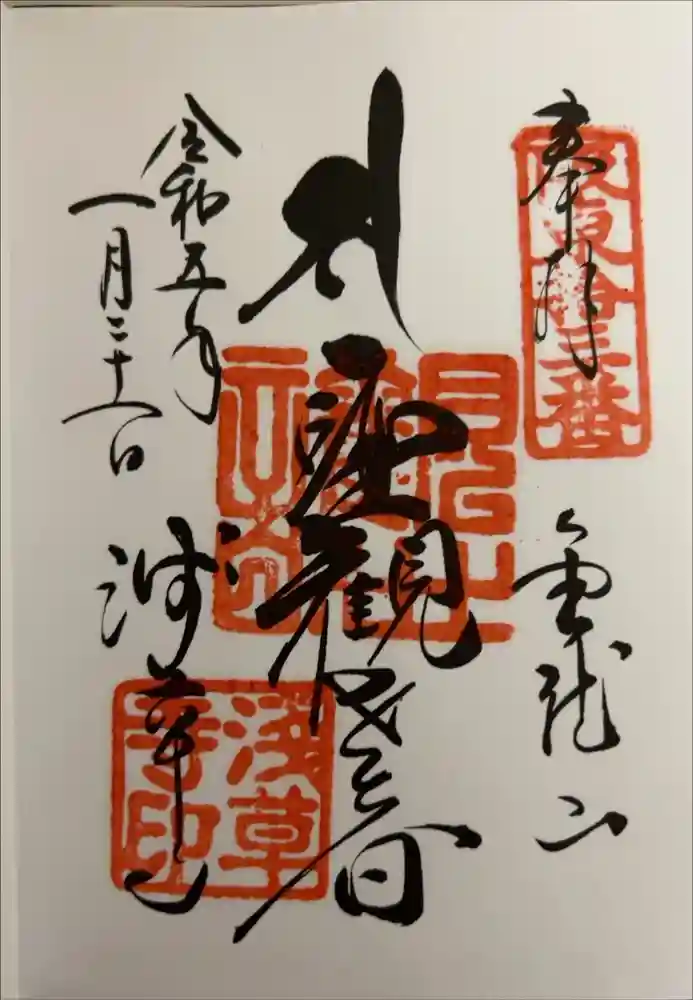 奉拝
坂東拾三番
金龍山
聖観世音
令和五年
一月二十一日
浅草寺
浅草寺印